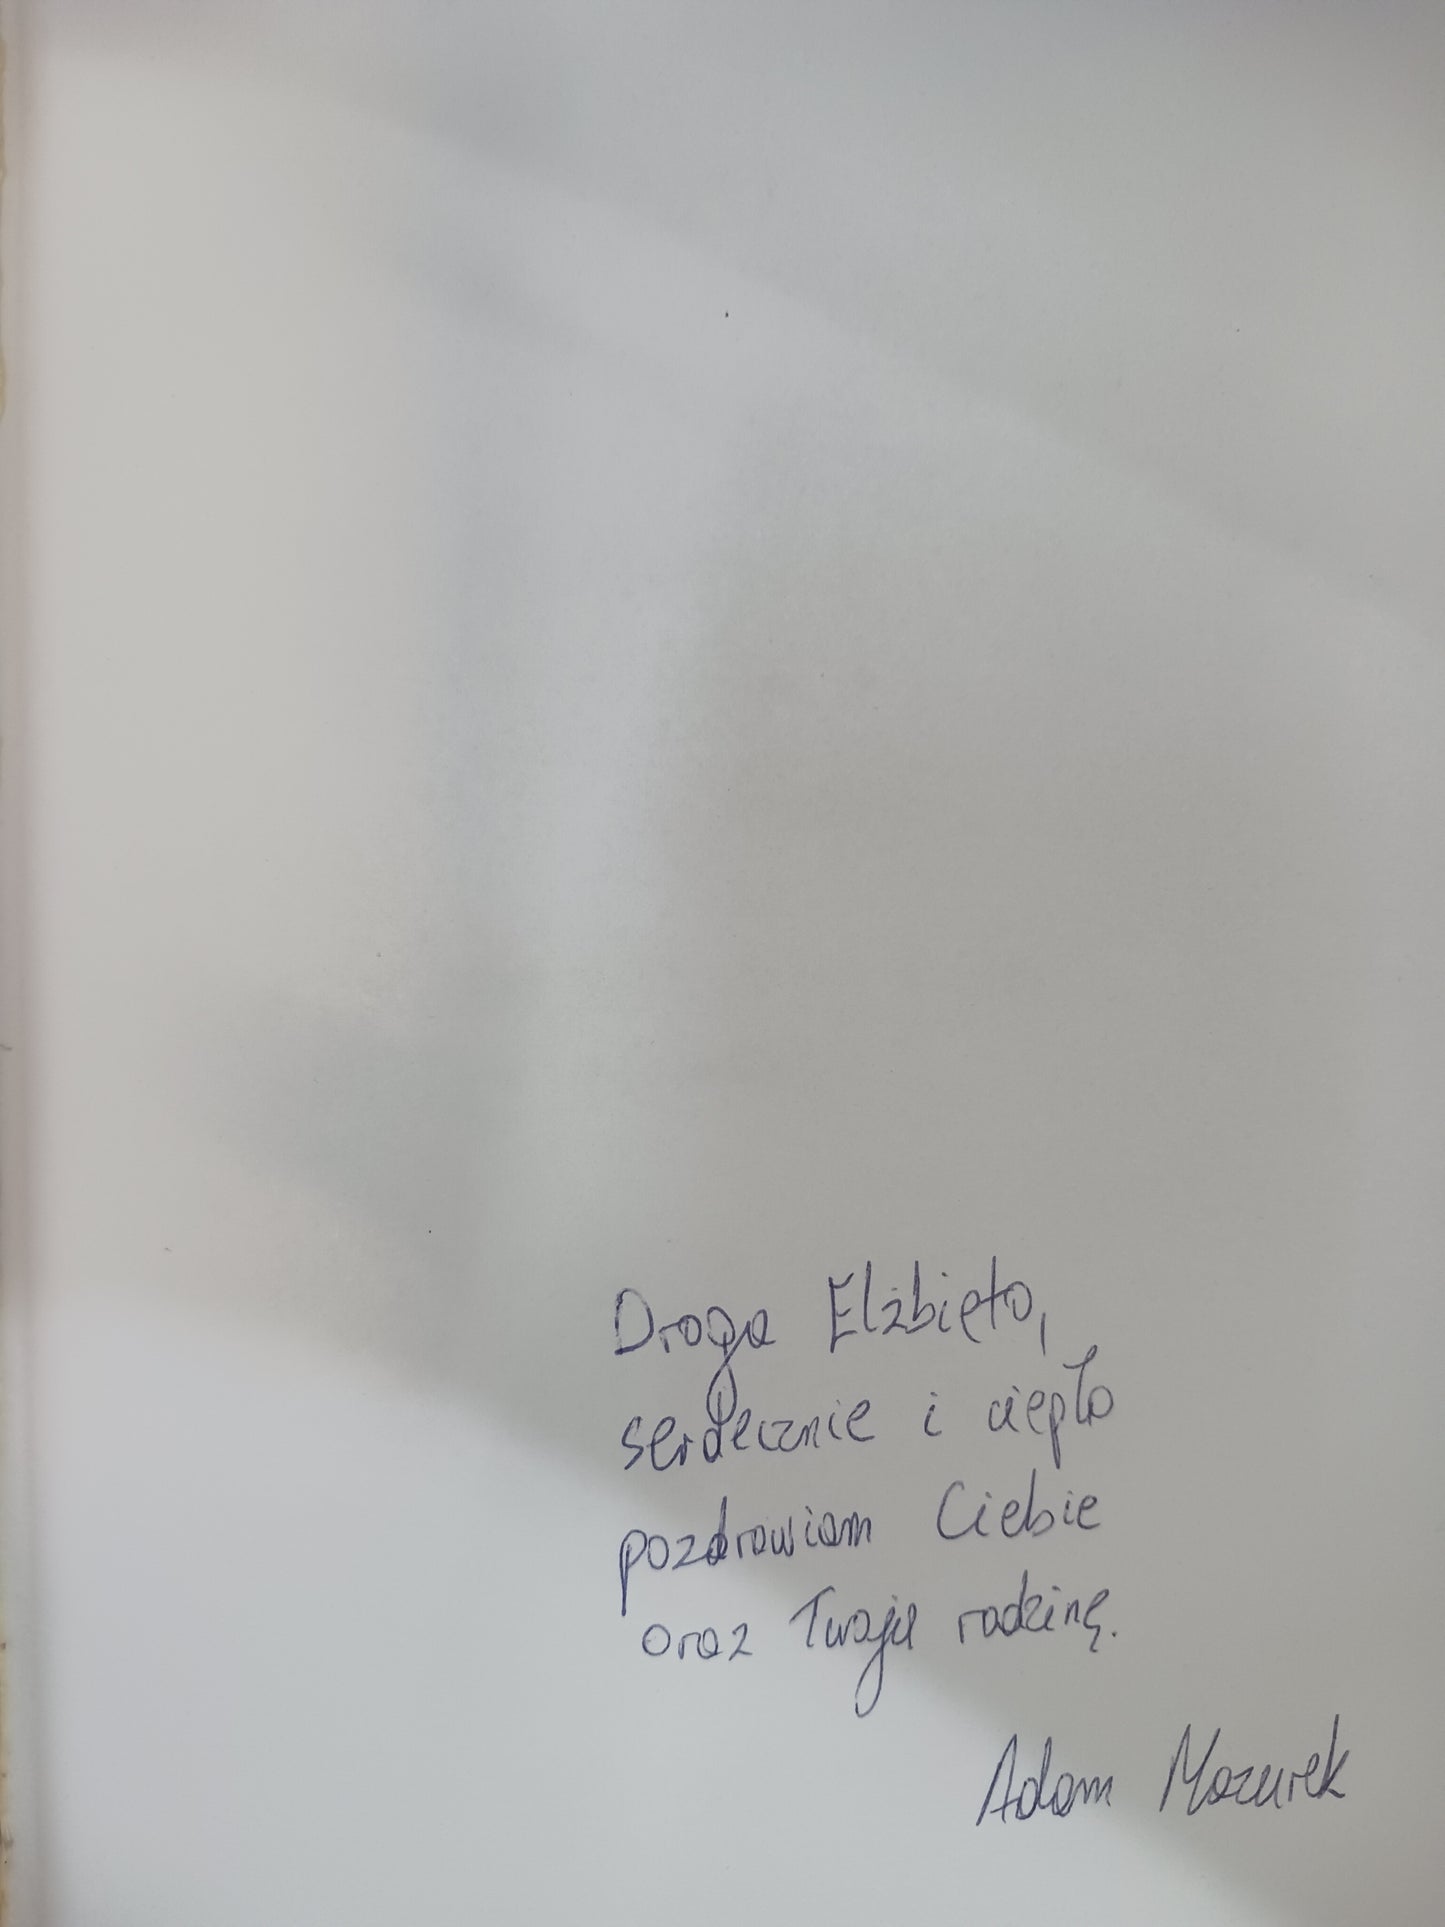 Droga Elżbieto,
serdecznie i ciepło
pozdrawiam Ciebie
oraz Twoją rodzinę.
Adam Mazurek